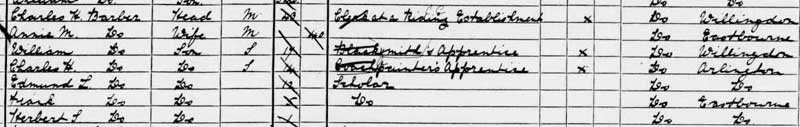 Charles H. Barber Head M 43 Clerk at a Riding Establishment x Do Willingdon
Annie M. Do Wife M 40 Do Eastbourne
William Do Son S 17 Blacksmith's Apprentice x Do Willingdon
Charles H. Do Do S 14 Coach Painter's Apprentice x Do Arlington
Edmund L. Do Do 12 Scholar Do Do
Frank Do Do Do Do Eastbourne
Herbert S. Do Do Do Do